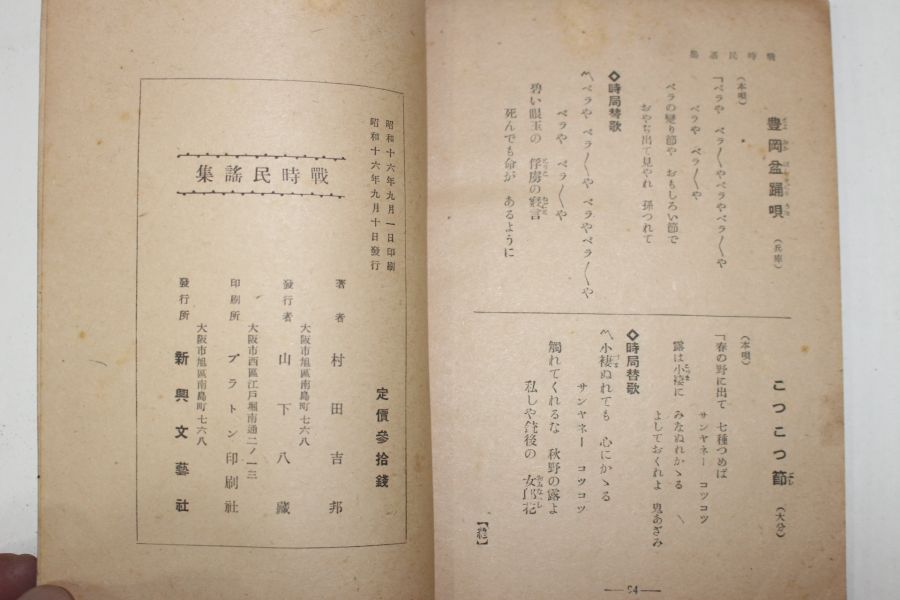 戰時民謠集
豊岡盆踊唄
（兵庫）
（本唄）
「ベラや ベラ〱や ベラやベラ〱や
ベラや ベラ〱や
ベラの變り節や おもしろい節で
おやぢ出て見やれ 孫つれて
◇時局替歌
〽ベラや ベラ〱や ベラやベラ〱や
ベラや ベラ〱や
碧い眼玉の 俘虜の寢言
死んでも命が あるように
こつこつ節
（大分）
（本唄）
「春の野に出て 七種つめば
サンヤネー コツコツ
露は小褄に みなぬれかゝる
よしておくれよ 鬼あざみ
◇時局替歌
〽小褄ぬれても 心にかゝる
サンヤネー コツコツ
觸れてくれるな 秋野の露よ
私しや銃後の 女郎花
【終】
—94—
昭和十六年九月一日印刷
昭和十六年九月十日發行
戰時民謠集
定價參拾錢
著者 村田吉邦
大阪市旭區南島町七六八
發行者 山下八藏
大阪市西區江戸堀南通二ノ一三
印刷所 プラトン印刷社
大阪市旭區南島町七六八
發行所 新興文藝社